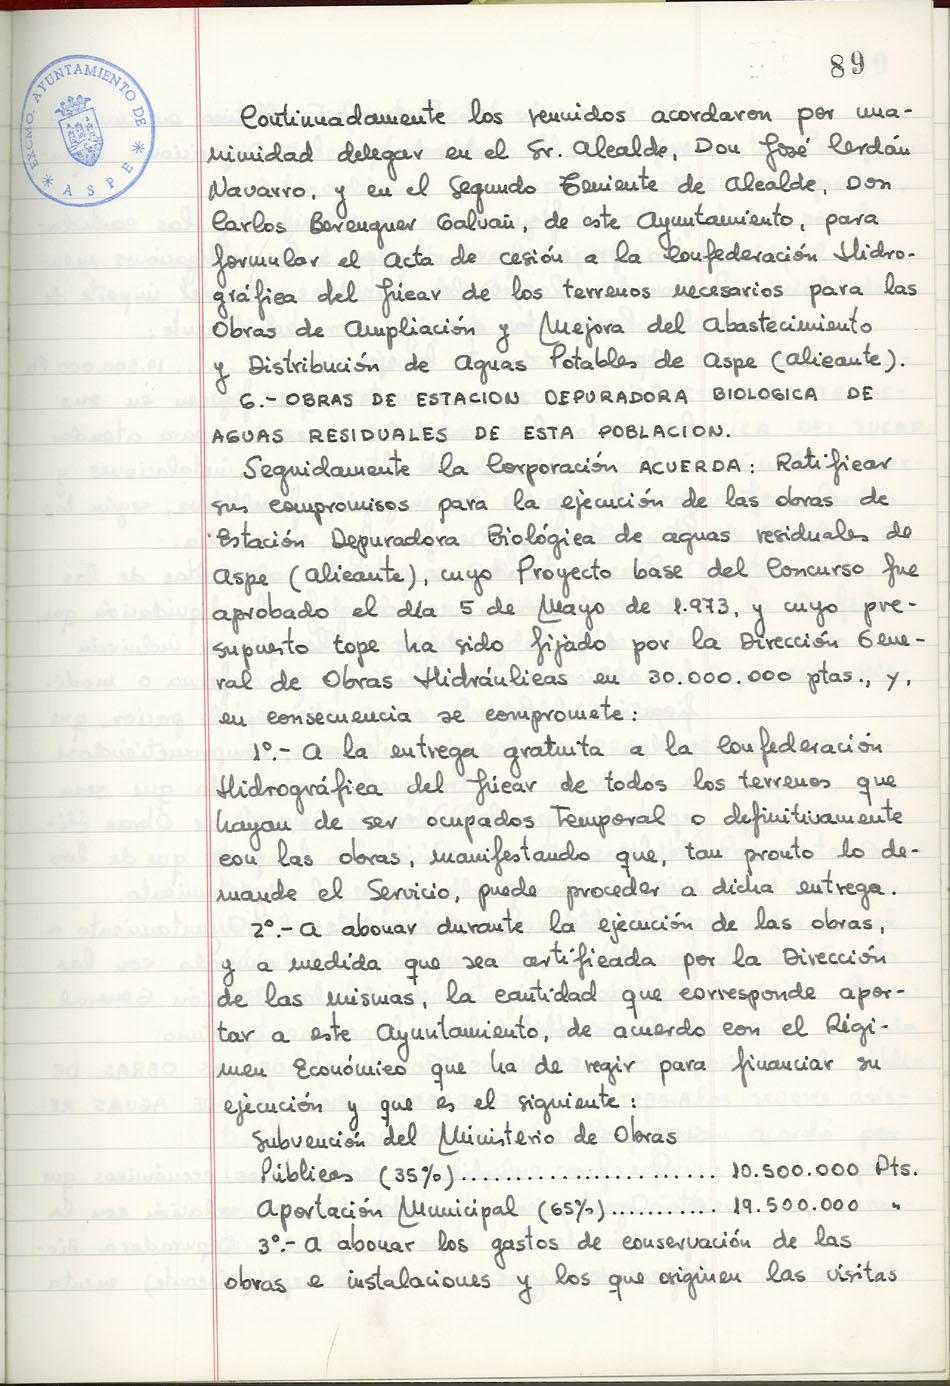 89
EXCMO. AYUNTAMIENTO DE
* ASPE *
Continuadamente los reunidos acordaron por una-
nimidad delegar en el Sr. Alcalde, Don José Cerdán
Navarro, y en el Segundo Teniente de Alcalde, Don
Carlos Berenguer Galvañ, de este Ayuntamiento, para
formular el Acta de cesión a la Confederación Hidro-
gráfica del Júcar de los terrenos necesarios para las
Obras de Ampliación y Mejora del Abastecimiento
y Distribución de Aguas Potables de Aspe (Alicante).
6.- OBRAS DE ESTACION DEPURADORA BIOLOGICA DE
AGUAS RESIDUALES DE ESTA POBLACION.
Seguidamente la Corporación ACUERDA: Ratificar
sus compromisos para la ejecución de las obras de
Estación Depuradora Biológica de aguas residuales de
Aspe (Alicante), cuyo Proyecto base del Concurso fue
aprobado el día 5 de Mayo de 1.973, y cuyo pre-
supuesto tope ha sido fijado por la Dirección Gene-
ral de Obras Hidráulicas en 30.000.000 ptas., y,
en consecuencia se compromete:
1º.- A la entrega gratuita a la Confederación
Hidrográfica del Júcar de todos los terrenos que
hayan de ser ocupados Temporal o definitivamente
con las obras, manifestando que, tan pronto lo de-
mande el Servicio, puede proceder a dicha entrega.
2º.- A abonar durante la ejecución de las obras,
y a medida que sea certificada por la Dirección
de las mismas, la cantidad que corresponde apor-
tar a este Ayuntamiento, de acuerdo con el Régi-
men Económico que ha de regir para financiar su
ejecución y que es el siguiente:
Subvención del Ministerio de Obras
Públicas (35%)...................... 10.500.000 Pts.
Aportación Municipal (65%)........... 19.500.000 "
3º.- A abonar los gastos de conservación de las
obras e instalaciones y los que originen las visitas